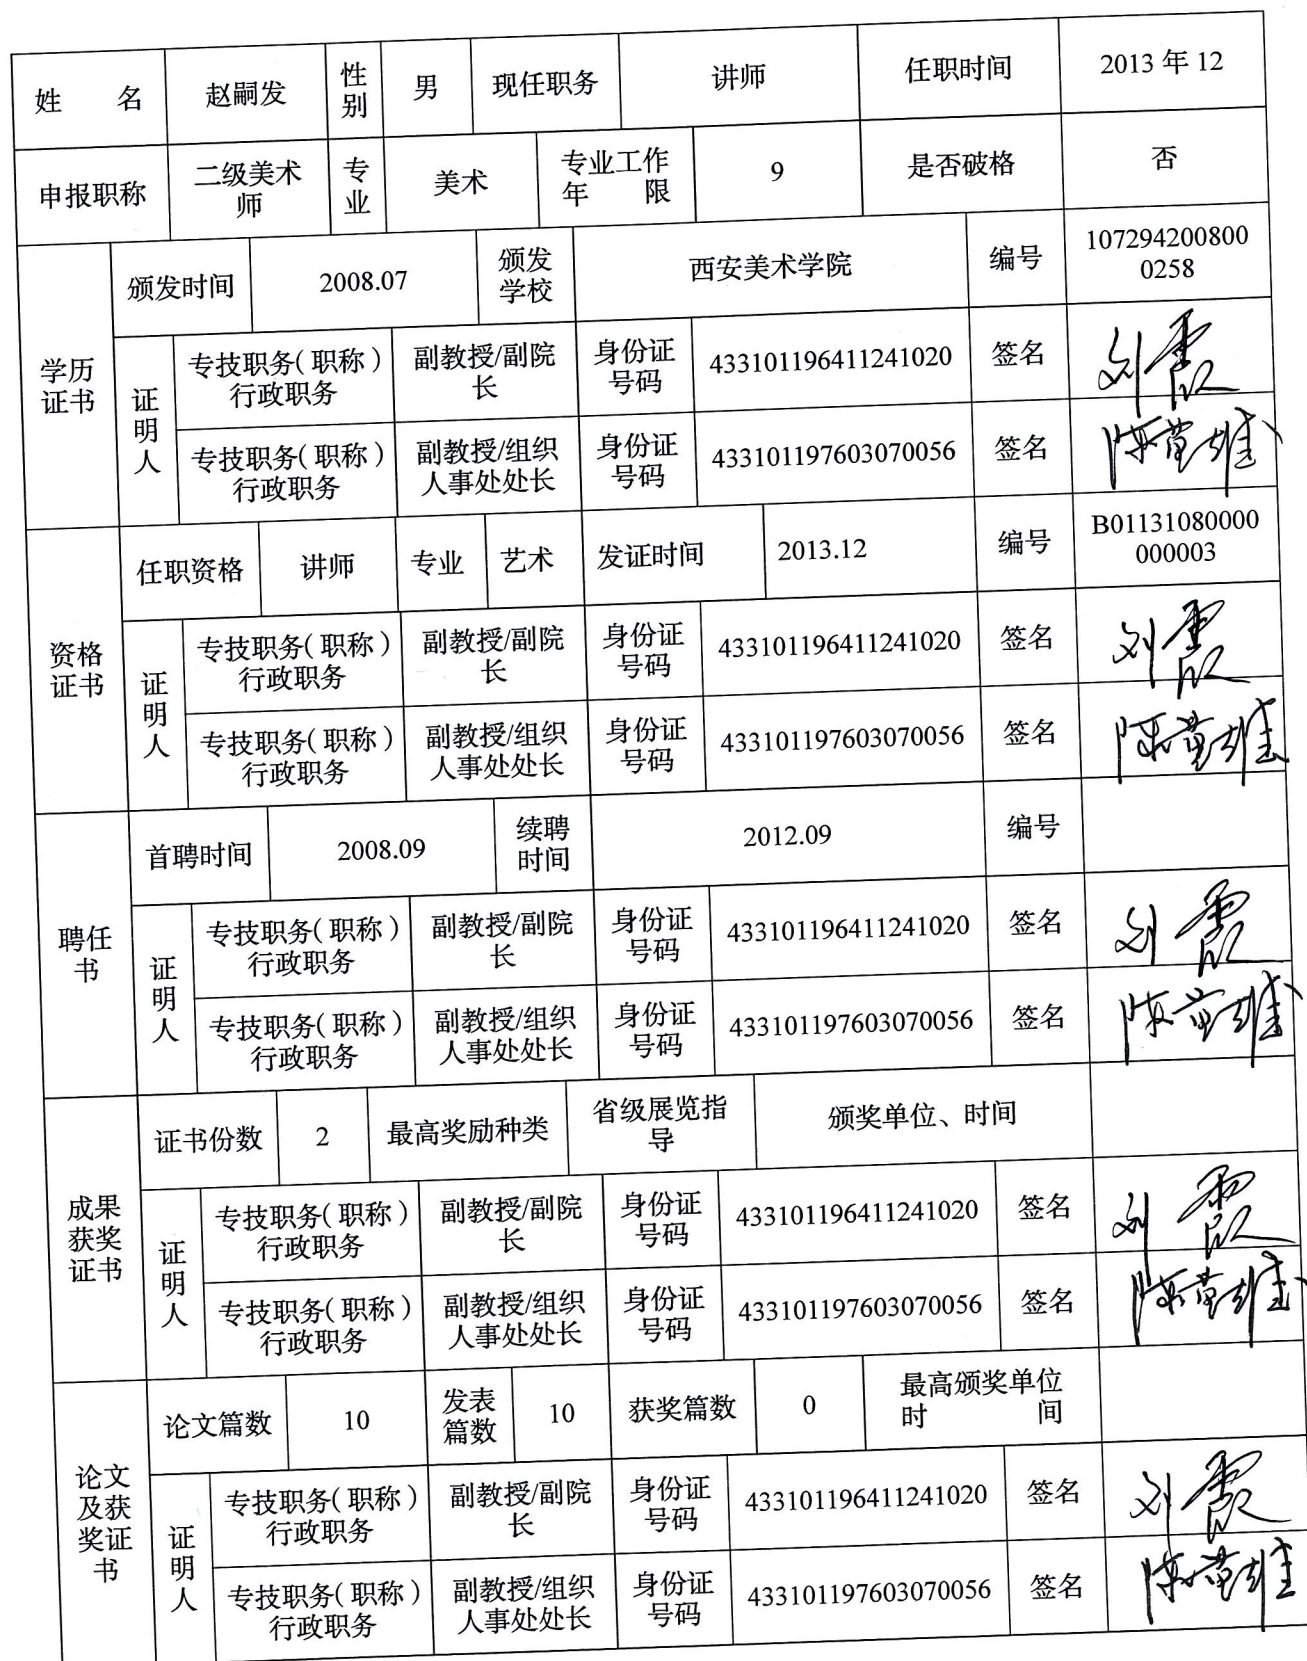 姓 名 赵嗣发 性别 男 现任职务 讲师 任职时间 2013 年 12
申报职称 二级美术师 专业 美术 专业工作年 限 9 是否破格 否
学历证书 颁发时间 2008.07 颁发学校 西安美术学院 编号 1072942008000258
证明人 专技职务(职称)行政职务 副教授/副院长 身份证号码 433101196411241020 签名 刘霞
专技职务(职称)行政职务 副教授/组织人事处处长 身份证号码 433101197603070056 签名
资格证书 任职资格 讲师 专业 艺术 发证时间 2013.12 编号 B01131080000000003
证明人 专技职务(职称)行政职务 副教授/副院长 身份证号码 433101196411241020 签名 刘霞
专技职务(职称)行政职务 副教授/组织人事处处长 身份证号码 433101197603070056 签名
聘任书 首聘时间 2008.09 续聘时间 2012.09 编号
证明人 专技职务(职称)行政职务 副教授/副院长 身份证号码 433101196411241020 签名 刘霞
专技职务(职称)行政职务 副教授/组织人事处处长 身份证号码 433101197603070056 签名
成果获奖证书 证书份数 2 最高奖励种类 省级展览指导 颁奖单位、时间
证明人 专技职务(职称)行政职务 副教授/副院长 身份证号码 433101196411241020 签名 刘霞
专技职务(职称)行政职务 副教授/组织人事处处长 身份证号码 433101197603070056 签名
论文及获奖证书 论文篇数 10 发表篇数 10 获奖篇数 0 最高颁奖单位时 间
证明人 专技职务(职称)行政职务 副教授/副院长 身份证号码 433101196411241020 签名 刘霞
专技职务(职称)行政职务 副教授/组织人事处处长 身份证号码 433101197603070056 签名